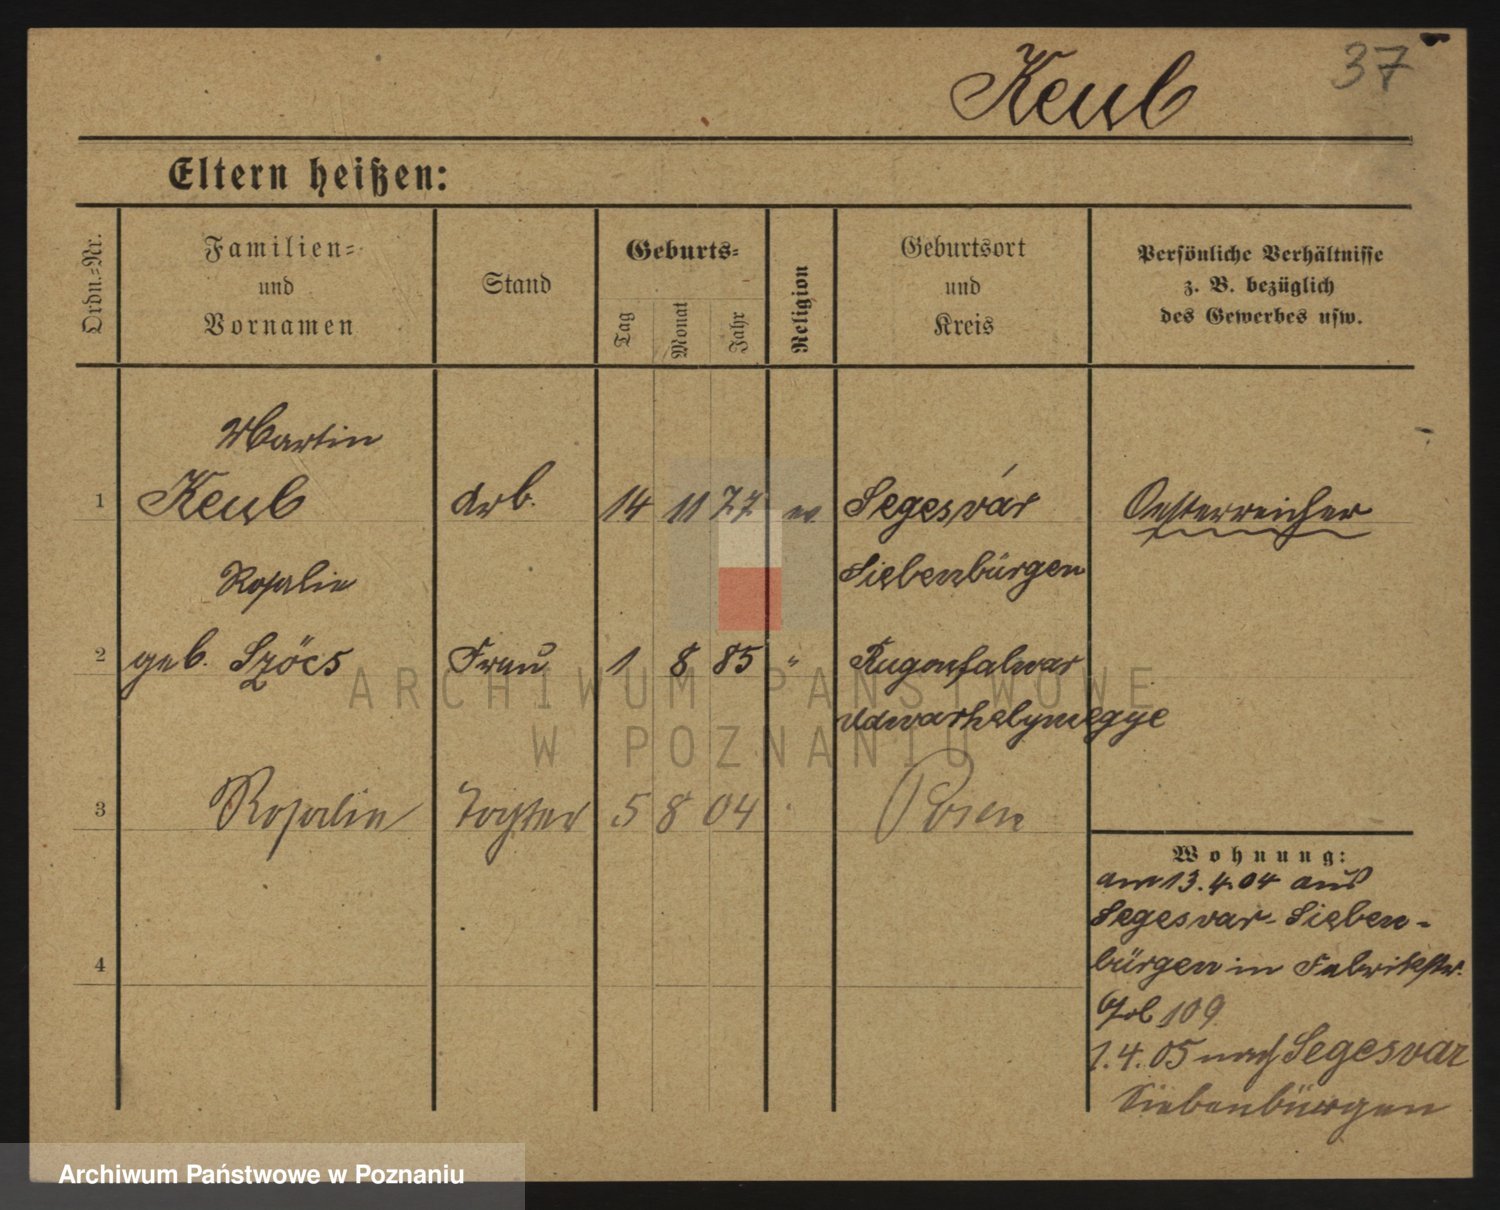 Keul
37
Eltern heißen:
Ordn.=Nr.
Familien=
und
Vornamen
Stand
Geburts=
Tag
Monat
Jahr
Religion
Geburtsort
und
Kreis
Persönliche Verhältnisse
z. B. bezüglich
des Gewerbes usw.
Martin
1 Keul Arb. 14 11 77 ev. Segesvár Oesterreicher
Siebenbürgen
Rosalie
2 geb. Szöcs Frau 1 8 85 " Rugonfalwar
Udwarhelymegye
3 Rosalie Tochter 5 8 04 Posen
4
Wohnung:
am 13.4.04 aus
Segesvar-Sieben-
bürgen in Fabrikstr.
109
1.4.05 nach Segesvar
Siebenbürgen
ARCHIWUM PAŃSTWOWE
W POZNANIU
Archiwum Państwowe w Poznaniu